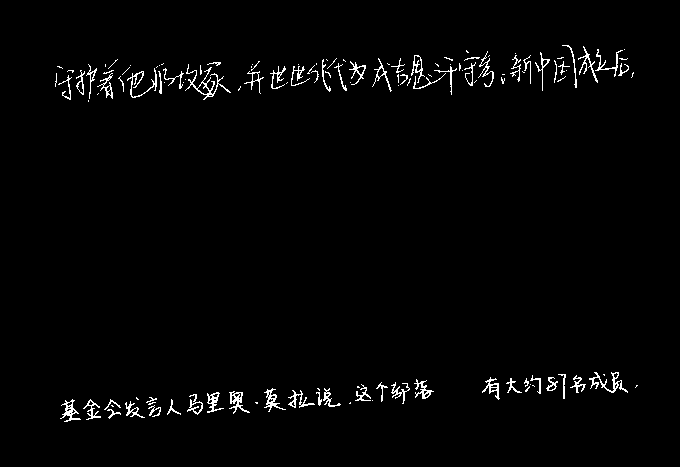 守护着他的坟冢,并世世代代为成吉思汗守孝。新中国成立后,
基金会发言人马里奥·莫拉说,这个部落 有大约87名成员,